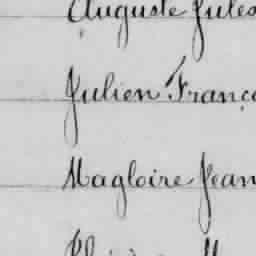 Auguste Jules
Julien Franço
Magloire Jean